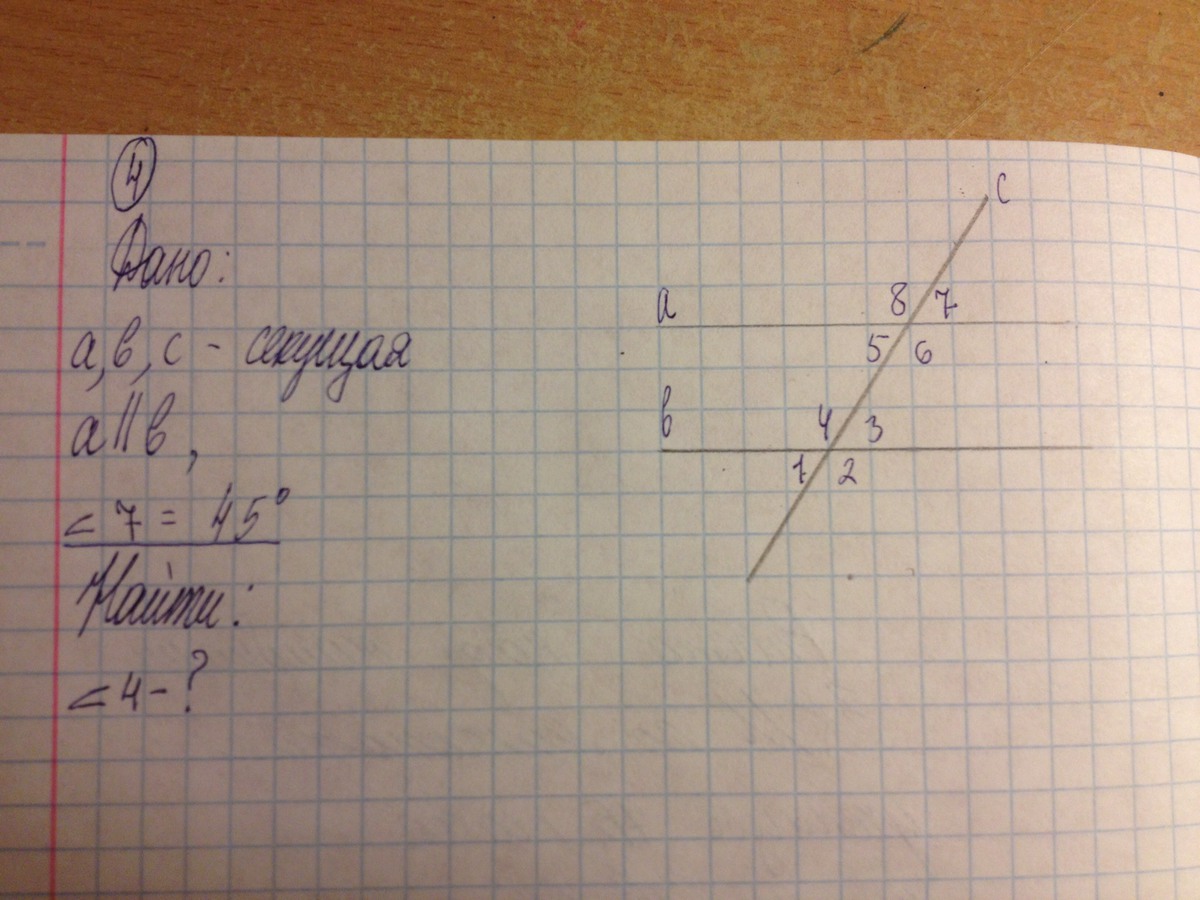 4
Дано:
а, в, с - секущая
а || в,
∠7 = 45°
Найти:
∠4 - ?
c
a
8 7
5 6
в
4 3
1 2